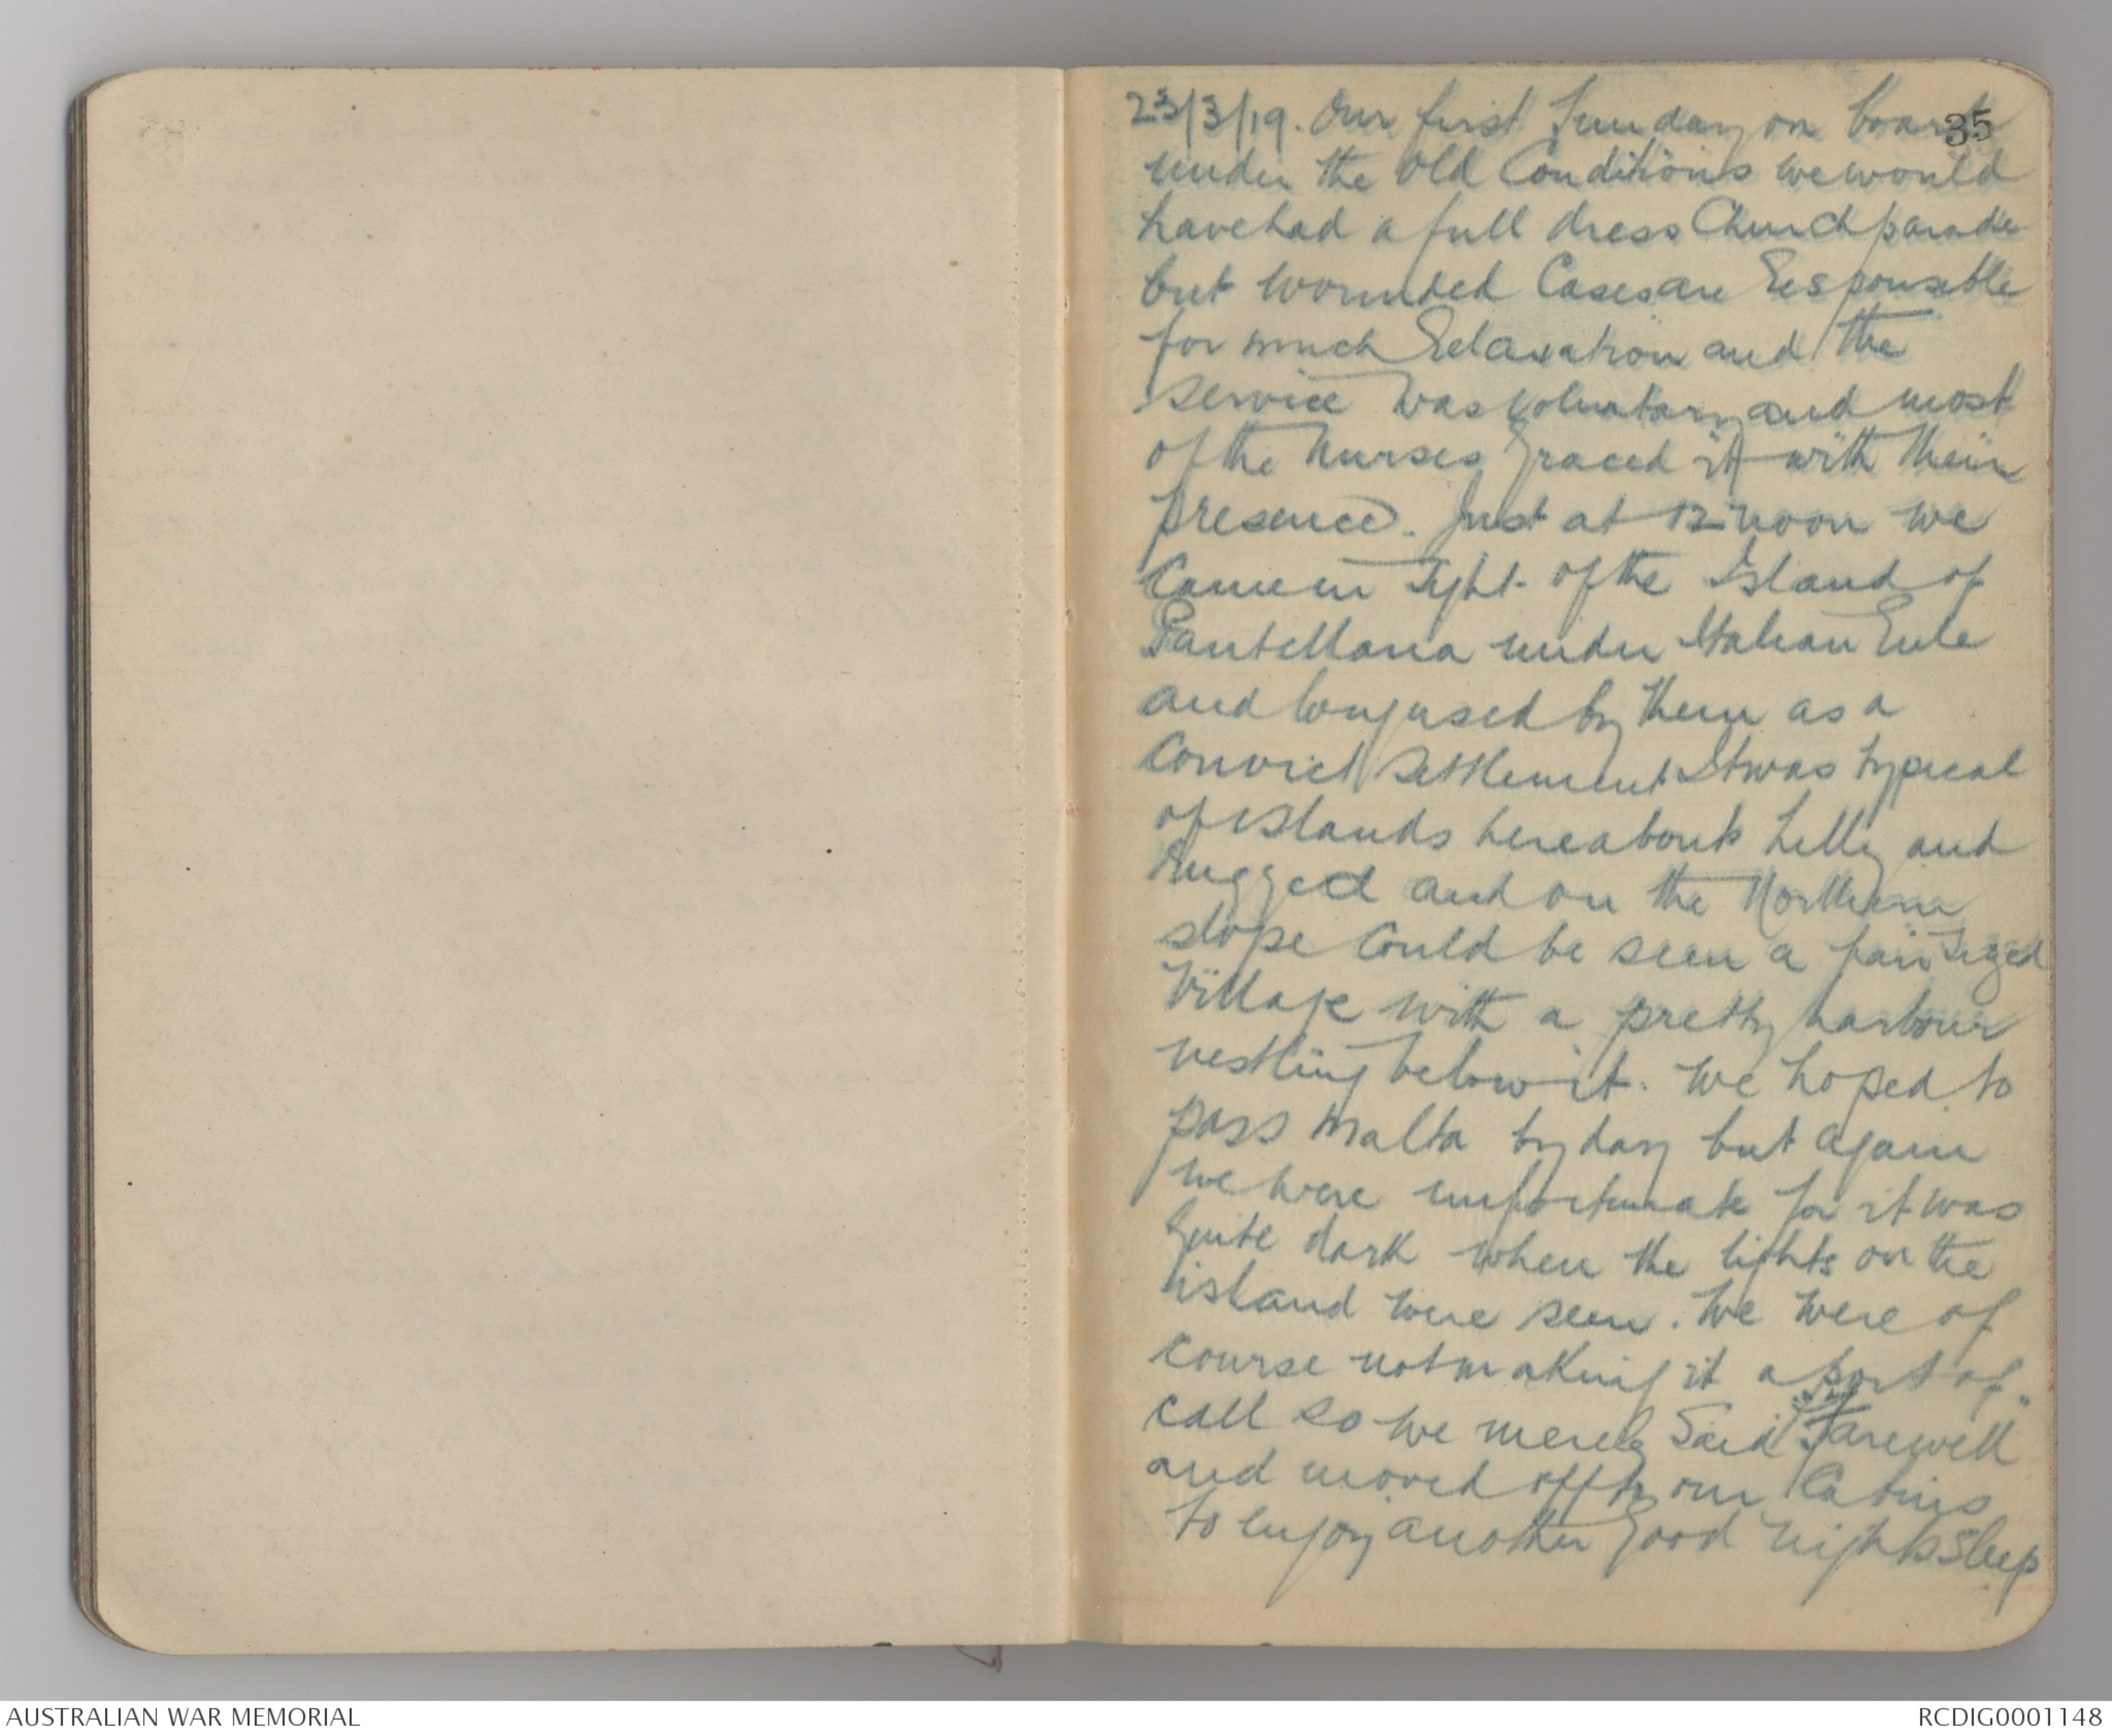 35
23/3/19. Our first Sunday on board
under the old Conditions we would
have had a full dress Church parade
but wounded Cases are Responsible
for much Relaxation and the
service was voluntary and most
of the Nurses Graced it with their
presence. Just at 12 noon we
Came in Sight of the Island of
Pantellaria under Italian Rule
and long used by them as a
Convict Settlement It was typical
of islands hereabouts hilly and
Rugged and on the Northern
slope Could be seen a fair sized
Village with a pretty harbour
nestling below it. We hoped to
pass Malta by day but again
we were unfortunate for it was
Quite dark when the lights on the
island were seen. We were of
course not making it a port of
call so we merely Said "Farewell"
and moved off to our Cabins
to enjoy another Good nights sleep
AUSTRALIAN WAR MEMORIAL
RCDIG0001148